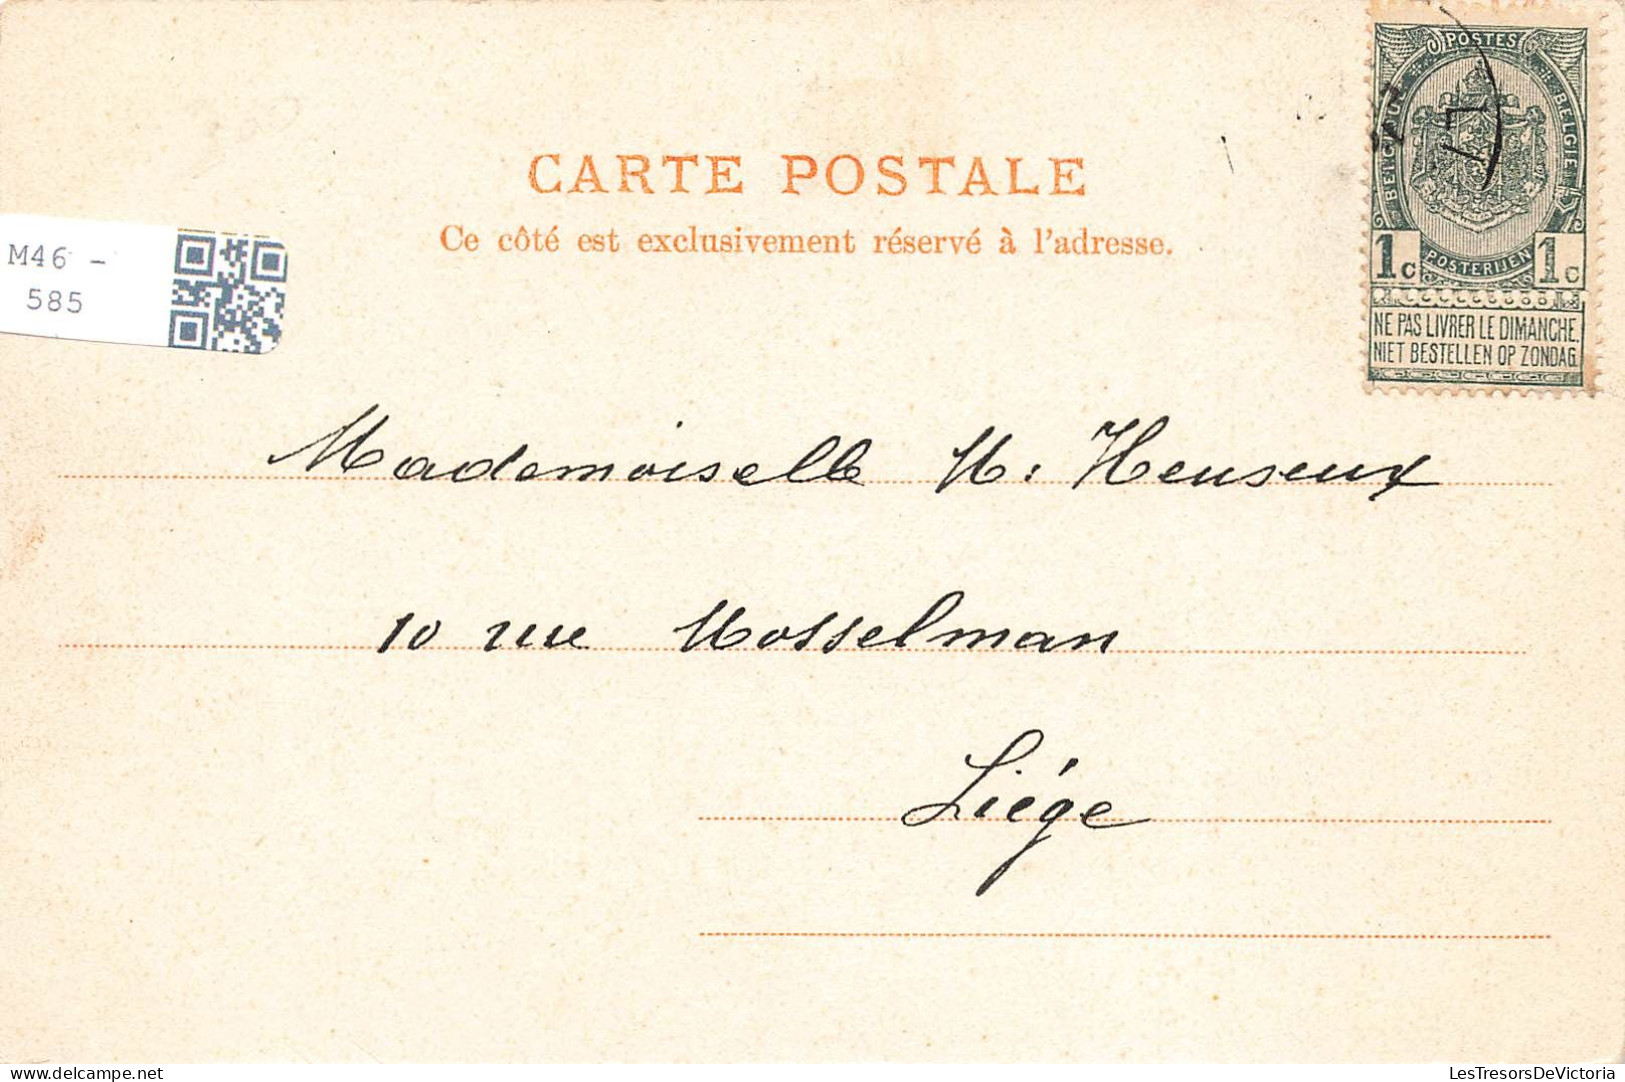 CARTE POSTALE
Ce côté est exclusivement réservé à l'adresse.
M46 -
585
POSTES
BELGIQUE
BELGIË
POSTERIJEN
1c 1c
NE PAS LIVRER LE DIMANCHE.
NIET BESTELLEN OP ZONDAG.
Mademoiselle M. Heuseux
10 rue Mosselman
Liége
www.delcampe.net
LesTresorsDeVictoria